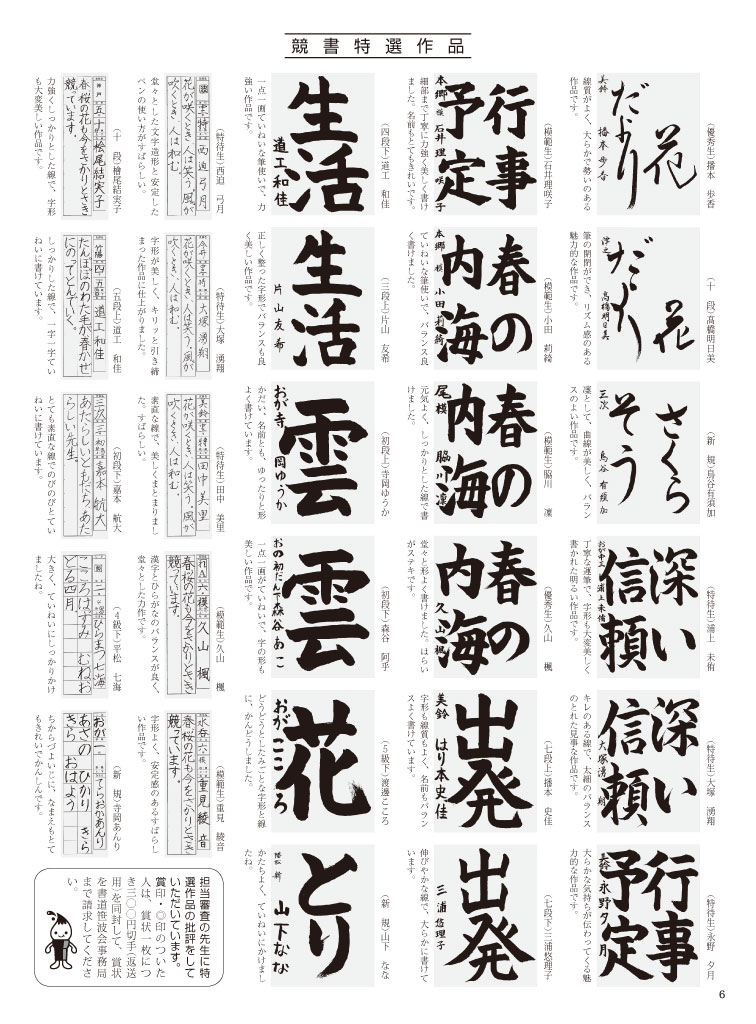 競書特選作品
花
だより
美鈴 播本歩香
(優秀生)播本 歩香
線質がよく、大らかで勢いのある
作品です。
花
だより
髙橋明日美
(十 段)髙橋明日美
筆の開閉ができ、リズム感のある
魅力的な作品です。
さくら
そう
三次 烏谷有須加
(新 規)烏谷有須加
凜として、曲線が美しく、バラン
スのよい作品です。
深い
信頼
おが中三 浦上未侑
(特待生)浦上 未侑
丁寧な運筆で、字形も大変美しく
書かれた明るい作品です。
深い
信頼
大塚湧翔
(特待生)大塚 湧翔
キレのある線で、太細のバランス
のとれた見事な作品です。
行事
予定
永野夕月
(特待生)永野 夕月
大らかな気持ちが伝わってくる魅
力的な作品です。
行事
予定
本郷 模 石井理咲子
(模範生)石井理咲子
細部まで丁寧に力強く美しく書け
ました。名前もとてもきれいです。
春の
内海
本郷 模 小田莉綺
(模範生)小田 莉綺
ていねいな筆使いで、バランス良
く書けました。
春の
内海
尾模 脇川凜
(模範生)脇川 凜
元気よく、しっかりとした線で書
けました。
春の
内海
久山楓
(優秀生)久山 楓
堂々と形よく書けました。はらい
がステキです。
出発
美鈴 はり本史佳
(七段上)播本 史佳
字形も線質もよく、名前もバラン
スよく書けています。
出発
三浦悠理子
(七段下)三浦悠理子
伸びやかな線で、大らかに書けて
います。
生活
道工和佳
(四段下)道工 和佳
一点一画ていねいな筆使いで、力
強い作品です。
生活
片山友希
(三段上)片山 友希
正しく整った字形でバランスも良
く美しい作品です。
雲
おが寺 岡ゆうか
(初段上)寺岡ゆうか
かだい、名前とも、ゆったりと形
よく書けています。
雲
おの初だん下森谷あこ
(初段下)森谷 阿乎
一点一画がていねいで、字の形も
美しい作品です。
花
おがこころ
(5級下)渡邊こころ
どうどうとしたみごとな字形と線
に、かんどうしました。
とり
新 山下なな
(新 規)山下 なな
かたちよく、ていねいにかけまし
たね。
特 西迫弓月
花が咲くとき、人は笑う。風が
吹くとき、人は和む。
(特待生)西迫 弓月
堂々とした文字造形と安定した
ペンの使い方がすばらしい。
今井 特 大塚湧翔
花が咲くとき、人は笑う。風が
吹くとき、人は和む。
(特待生)大塚 湧翔
字形が美しく、キリッと引き締
まった作品に仕上がりました。
美鈴 特 田中美里
花が咲くとき、人は笑う。風が
吹くとき、人は和む。
(特待生)田中 美里
素直な線で、美しくまとまりまし
た。すばらしい。
六模 久山楓
春、桜の花も今をさかりとさき
競っています。
(模範生)久山 楓
漢字とひらがなのバランスが良く、
堂々とした力作です。
永春 六模 重見綾音
春、桜の花も今をさかりとさき
競っています。
(模範生)重見 綾音
字形よく、安定感のあるすばらし
い作品です。
神戸 五十 桧尾結実子
春、桜の花も今をさかりとさき
競っています。
(十 段)檜尾結実子
力強くしっかりとした線で、字形
も大変美しい作品です。
竹陽 四 五 道工和佳
たんぽぽのわた毛が春かぜ
にのってとんでいく。
(五段上)道工 和佳
しっかりした線で、一字一字てい
ねいに書けています。
三次 三 初 嘉本航大
あたらしいともだち、あた
らしい先生。
(初段下)嘉本 航大
とても素直な線でのびのびとてい
ねいに書けています。
二 ひらまつ七海
こころはずみ むねお
どる四月
(4級下)平松 七海
大きく、ていねいにしっかりかけ
ましたね。
おが一 てらおかあんり
あさの ひかり きら
きら おはよう
(新 規)寺岡あんり
ちからづよいじに、なまえもとて
もきれいでかんしんです。
担当審査の先生に特
選作品の批評をして
いただいています。
賞印・◎印のついた
人は、賞状一枚につ
き三〇〇円切手(返送
用)を同封して、賞状
を書道笹波会事務局
まで請求してくださ
い。
6